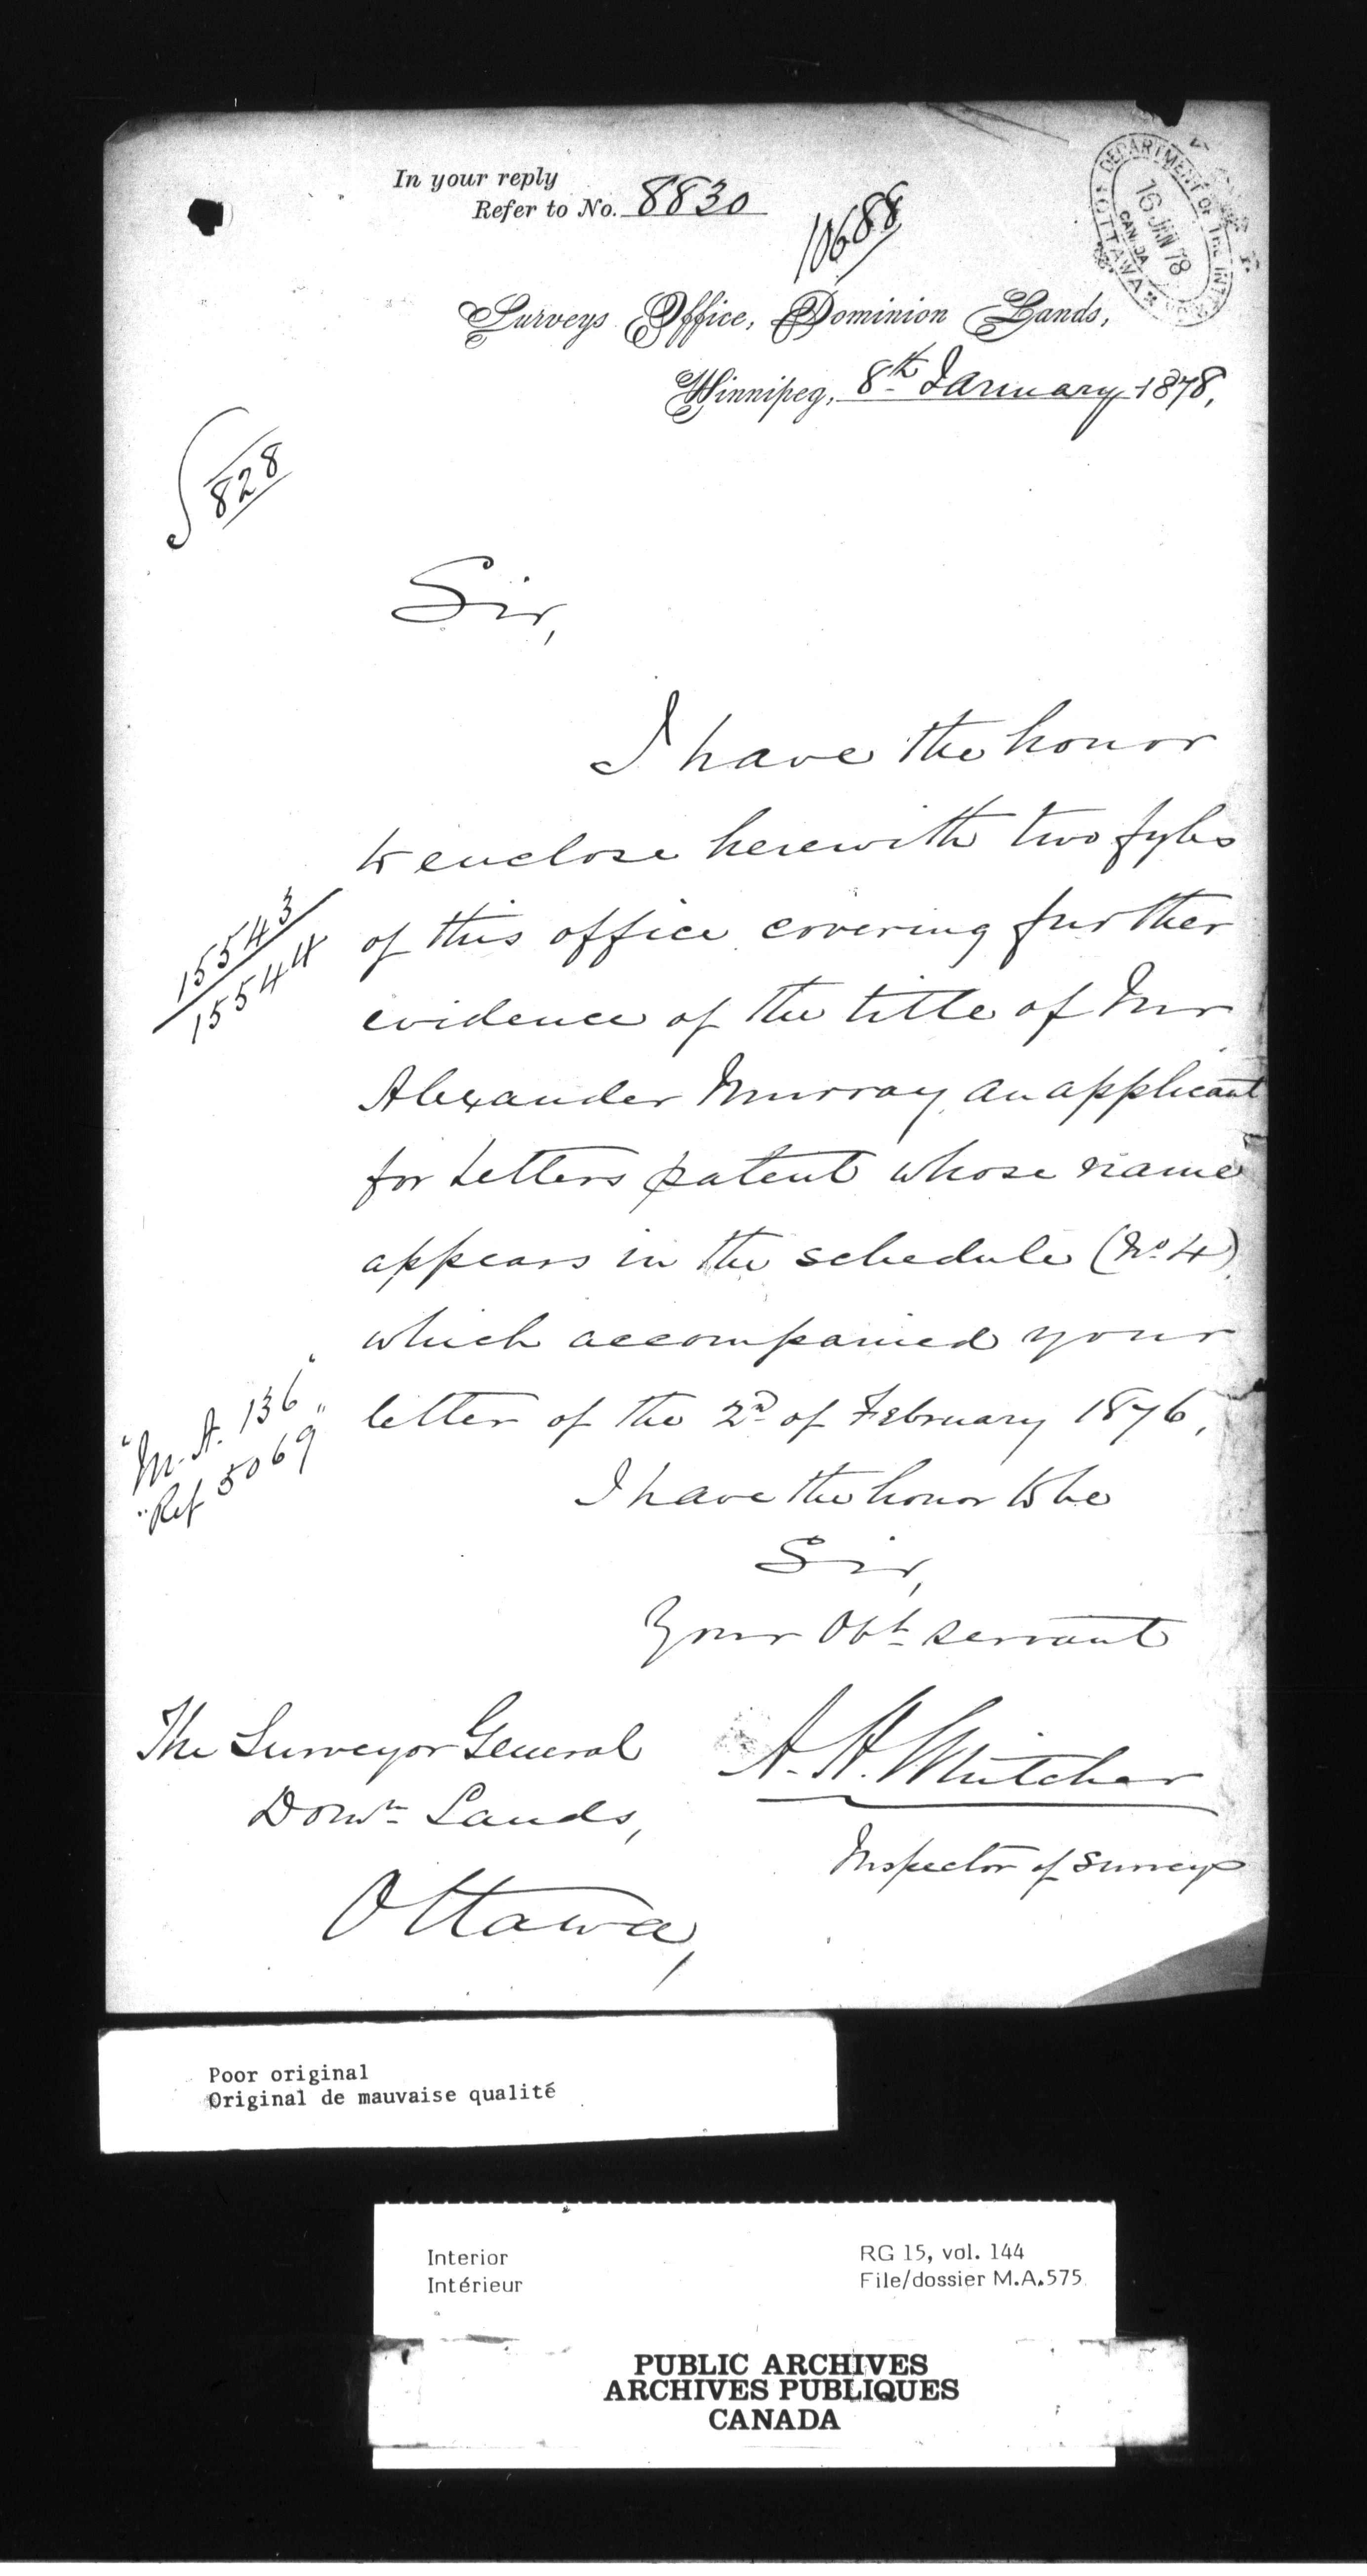 In your reply
Refer to No. 8830
10688
DEPARTMENT OF THE INT
16 JAN 78
CANADA
OTTAWA
Surveys Office, Dominion Lands,
Winnipeg, 8th January 1878,
828
Sir,
I have the honor
to enclose herewith two fyles
of this office covering further
15543
15544
evidence of the title of Mr
Alexander Murray, an applicant
for Letters patent whose name
appears in the schedule (No 4)
which accompanied your
"M.A. 136"
"Ref 5069"
letter of the 2nd of February 1876,
I have the honor to be
Sir,
Your Obt servant
The Surveyor General
A. H. Whitcher
Domn Lands,
Inspector of Surveys
Ottawa,
Poor original
Original de mauvaise qualité
Interior
Intérieur
RG 15, vol. 144
File/dossier M.A.575
PUBLIC ARCHIVES
ARCHIVES PUBLIQUES
CANADA